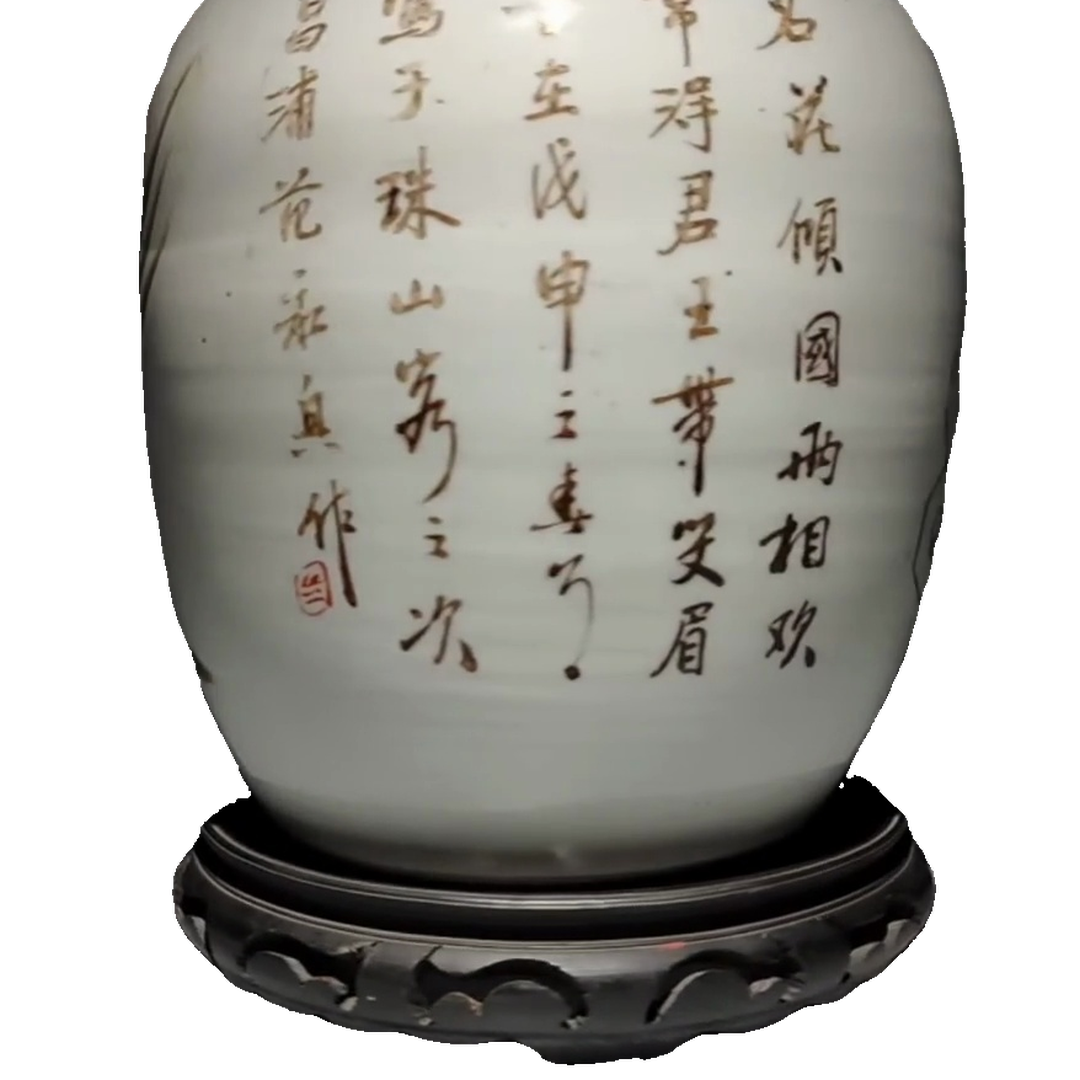 名花傾國两相欢
常得君王帶笑眉
左戊申之春月
寫于珠山客之次
昌浦范永具作